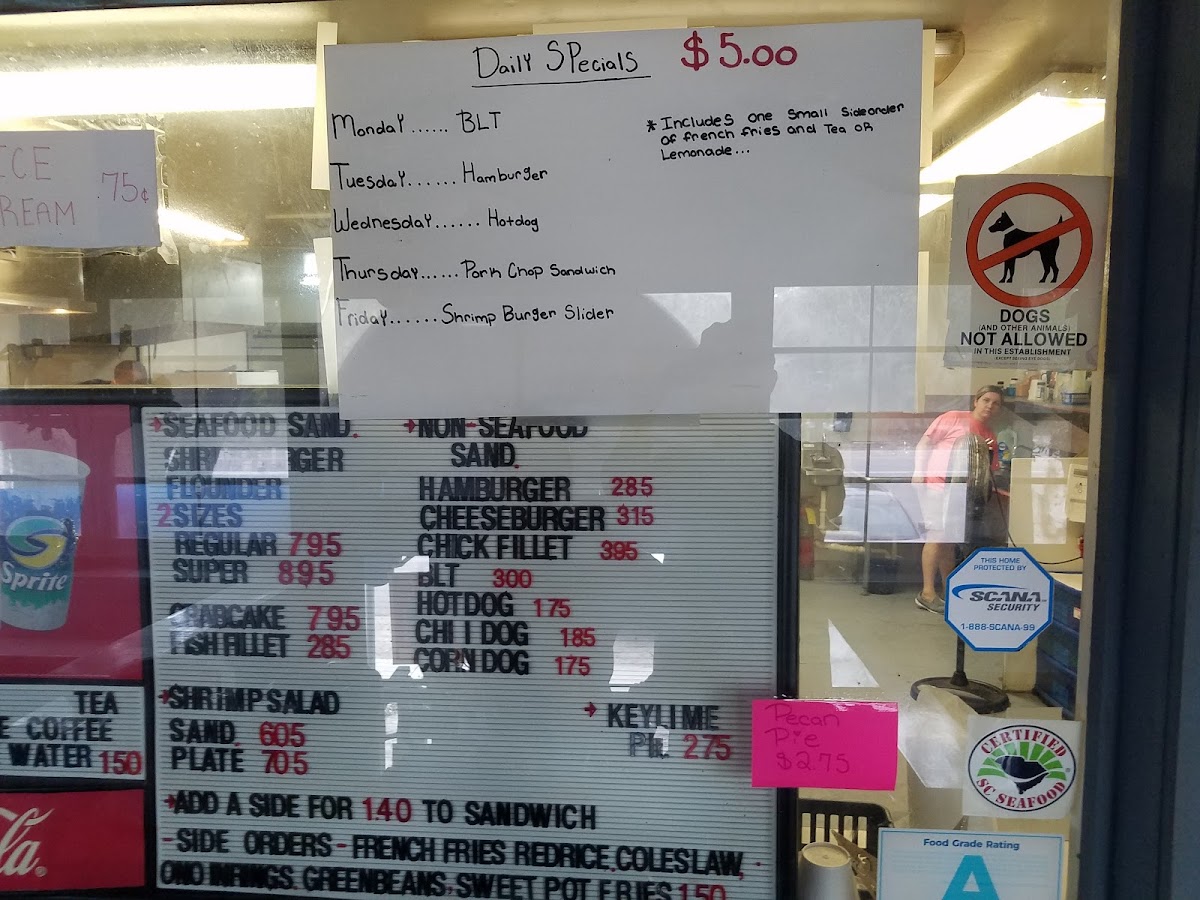 Daily SPecials $5.00
Monday...... BLT
Tuesday...... Hamburger
Wednesday...... Hotdog
Thursday...... Pork Chop Sandwich
Friday...... Shrimp Burger Slider
* Includes one Small Sideorder
of french fries and Tea OR
Lemonade...
ICE
REAM
.75¢
DOGS
(AND OTHER ANIMALS)
NOT ALLOWED
IN THIS ESTABLISHMENT
SEAFOOD SAND.
FLOUNDER
2 SIZES
REGULAR 795
SUPER 895
CRABCAKE 795
FISH FILLET 285
SHRIMP SALAD
SAND. 605
PLATE 705
NON-SEAFOOD
SAND.
HAMBURGER 285
CHEESEBURGER 315
CHICK FILLET 395
BLT 300
HOTDOG 175
CHI I DOG 185
CORN DOG 175
KEYLIME
PIE 275
ADD A SIDE FOR 140 TO SANDWICH
- SIDE ORDERS - FRENCH FRIES REDRICE, COLESLAW,
ONO INRINGS, GREENBEANS, SWEET POT FRIES 150
Sprite
TEA
E COFFEE
WATER 150
la
Pecan
Pie
$2.75
THIS HOME
PROTECTED BY
SCANA
SECURITY
1-888-SCANA-99
CERTIFIED
SC SEAFOOD
Food Grade Rating
A